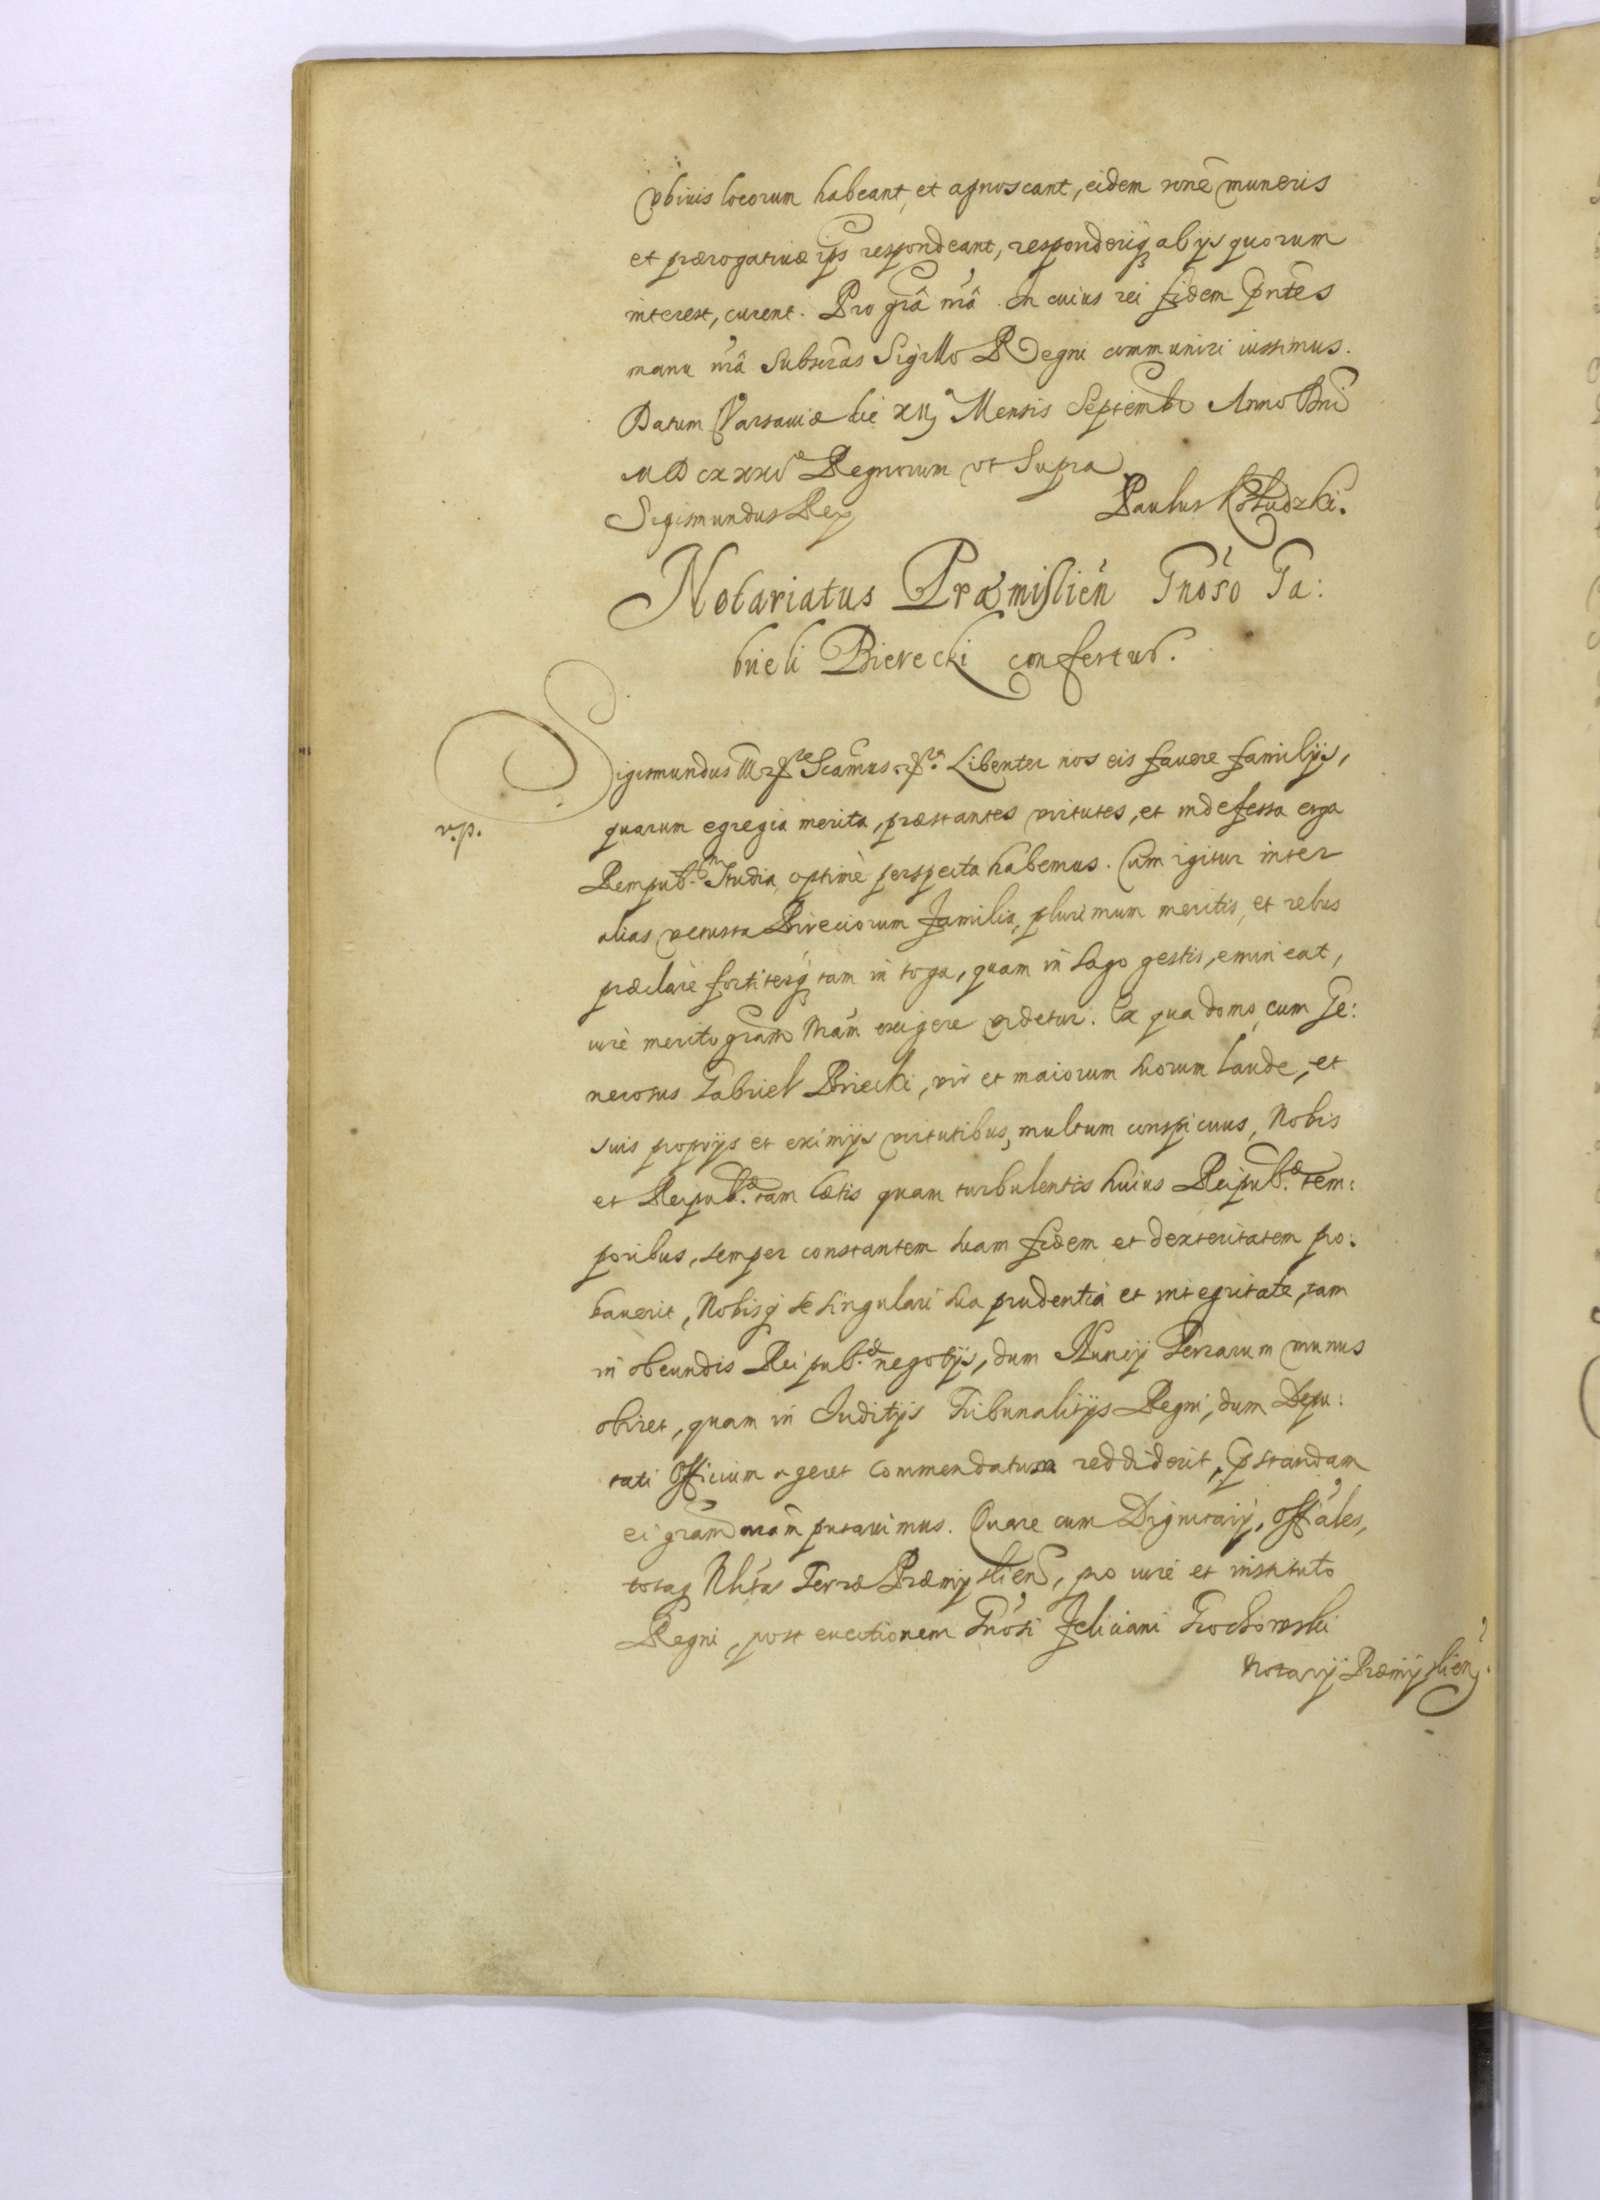 Vbiuis locorum habeant, et agnoscant, eidem rone muneris
et prærogatiuæ ips respondeant, responderiq ab ijs quorum
interest, curent. Pro gra nra. In cuius rei fidem pntes
manu nra subscras Sigillo Regni communiri iussimus.
Datum Varsauiæ die XII Mensis Septembr Anno Dni
MDCXXIV Regnorum vt supra
Sigismundus Rex Paulus Kołudzki.
Notariatus Præmislien Gnoso Ga:
brieli Bierecki confertur.
Sigismundus III Scamus Libenter nos eis fauere familijs,
v.p.
quarum egregia merita, præstantes virtutes, et indefessa erga
Rempub. studia, optime perspecta habemus. Cum igitur inter
alias vetusta Bireciorum familia, plurimum meritis, et rebus
præclare fortiterq tam in toga, quam in sago gestis, emineat,
iure merito gram nram exigere videtur. Ex qua domo, cum Ge:
nerosus Gabriel Biriecki, vir et maiorum suorum laude, et
suis proprijs et eximijs virtutibus, multum conspicuus, Nobis
et Reipub. tam lætis quam turbulentis huius Reipub. tem:
poribus, semper constantem suam fidem et dexteritatem pro:
bauerit, Nobisq se singulari sua prudentia et integritate, tam
in obeundis Reipub. negotijs, dum Nuncij Terrarum munus
obiret, quam in Iuditijs Tribunalitijs Regni, dum Depu:
tati Officium ageret commendatum reddiderit, pstandam
ei gram nram putauimus. Quare cum Dignitarij, Offales,
totaq Nlitas Terræ Præmyslien, pro iure et instituto
Regni, post euectionem Gnosi Feliciani Grochowski
Notarij Præmyslien.